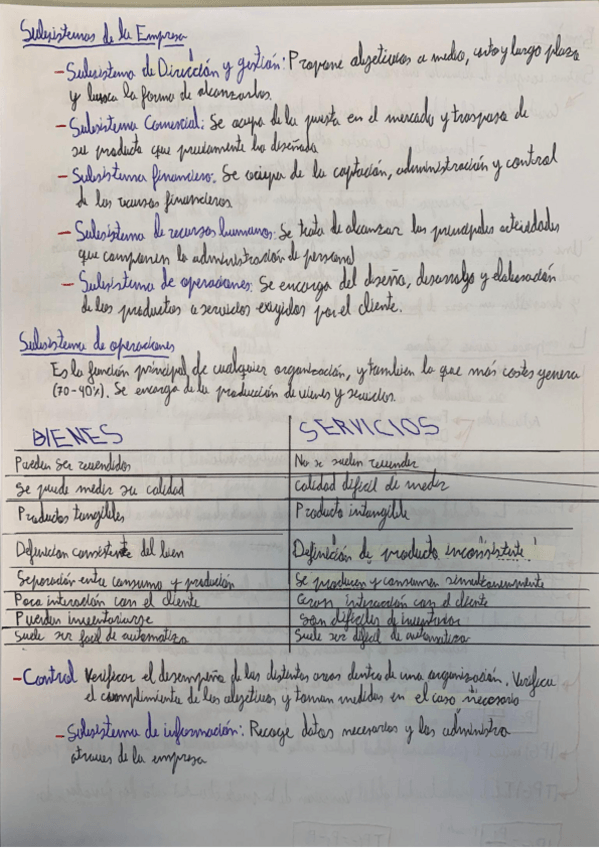 Subsistemas de la Empresa
- Subsistema de Dirección y gestión: Propone objetivos a medio, corto y largo plazo
y busca la forma de alcanzarlos.
- Subsistema Comercial: Se ocupa de la puesta en el mercado y traspaso de
su producto que previamente ha diseñado
- Subsistema financiero. Se ocupa de la captación, administración y control
de los recursos financieros
- Subsistema de recursos humanos: Se trata de alcanzar las principales actividades
que componen la administración de personal
- Subsistema de operaciones: Se encarga del diseño, desarrollo y elaboración
de los productos o servicios exigidos por el cliente.
Subsistema de operaciones
Es la función principal de cualquier organización, y tambien la que más costes genera
(70-90%). Se encarga de la producción de bienes y servicios.
BIENES SERVICIOS
Pueden ser revendidos No se suelen revender
Se puede medir su calidad Calidad dificil de medir
Productos tangibles Producto intangible
Definicion consistente del bien Definición de producto inconsistente
Separación entre consumo y produción Se producen y consumen simultaneamente
Poca interaccion con el cliente Gran interacción con el cliente
Pueden inventariarse Son dificiles de inventariar
Suele ser facil de automatizar Suele ser dificil de automatizar
- Control Verificar el desempeño de las distintas areas dentro de una organización. Verifica
el cumplimiento de los objetivos y toman medidas en el caso necesario
- Subsistema de información: Recoge datos necesarios y los administra
atraves de la empresa